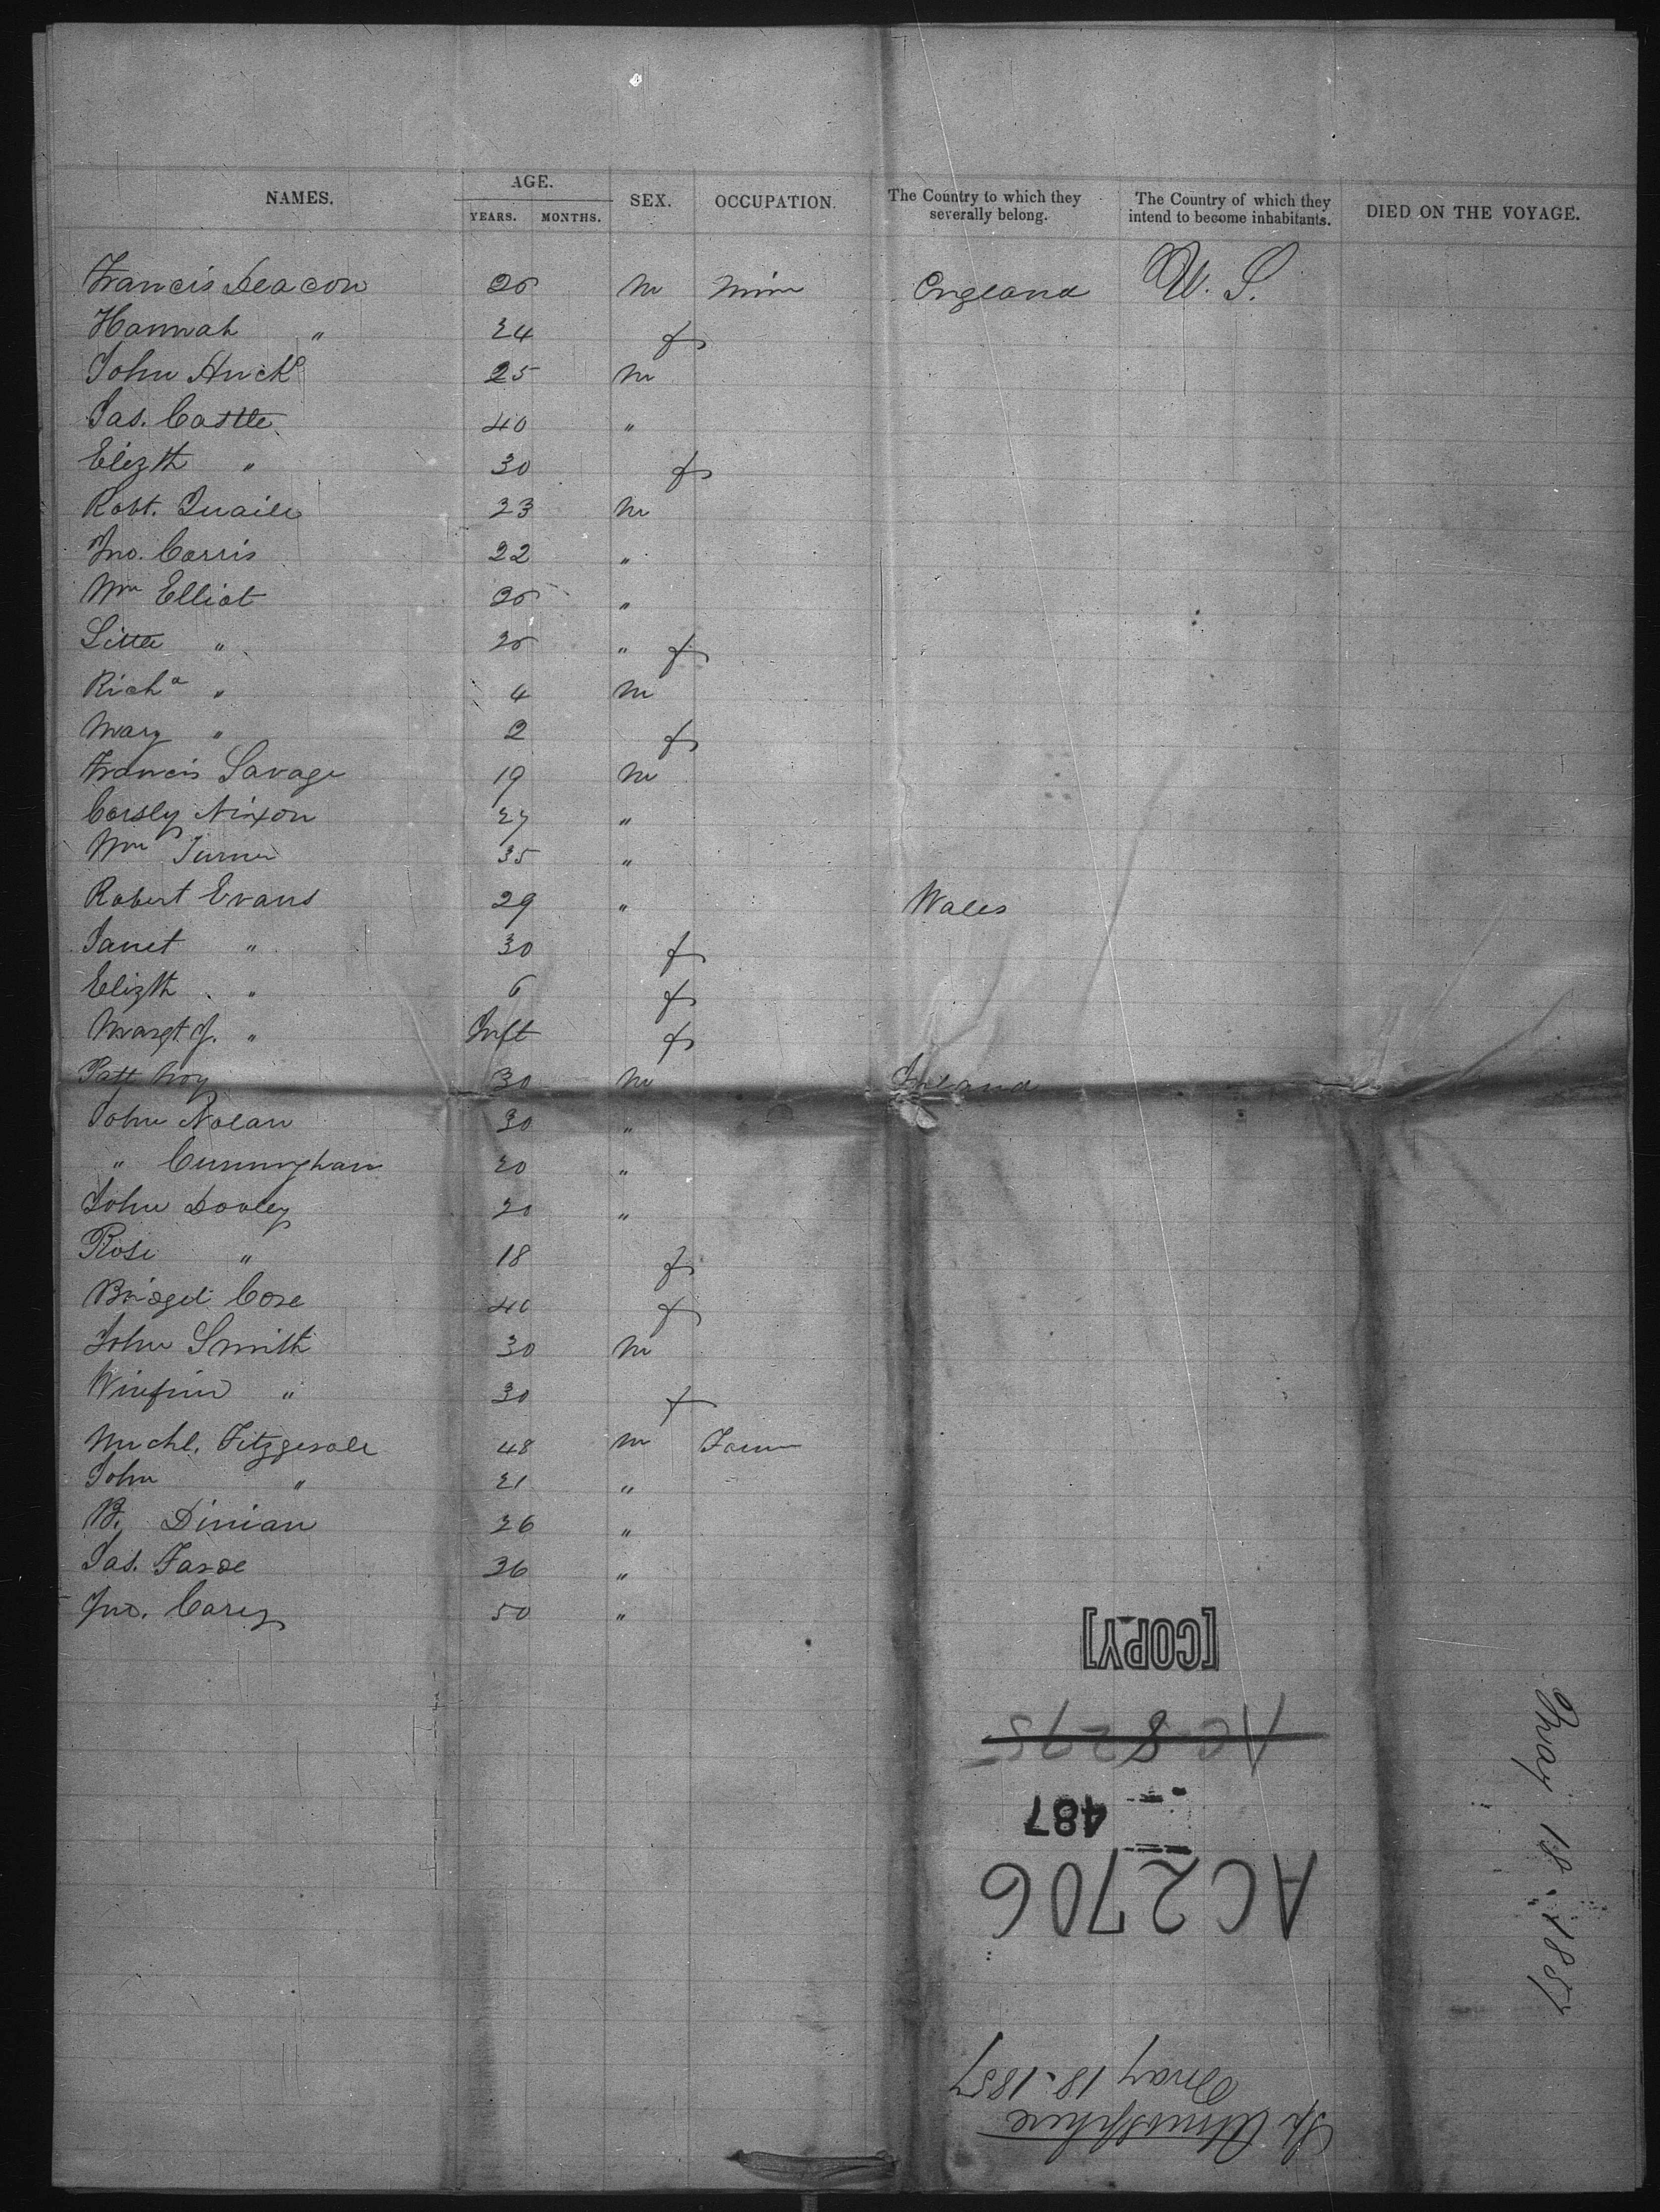 NAMES. AGE. YEARS. MONTHS. SEX. OCCUPATION. The Country to which they severally belong. The Country of which they intend to become inhabitants. DIED ON THE VOYAGE.
Francis Deacon 25 m England U. S.
Hannah " 24 f
John Huck 25 m
Jas. Castle 40 "
Elizth " 30 f
Robt. Quaile 23 m
Jno. Corris 22 "
Wm Elliot 25 "
" 25 " f
Richd " 4 m
Mary " 2 f
Francis Savage 19 m
Corsly Nixon 27 "
Wm Turner 35 "
Robert Evans 29 " Wales
Janet " 30 f
Elizth " 6 f
Margt J. " Inft f
Patt 30 m Ireland
John Nolan 30 "
" Cunningham 20 "
John Dooley 20 "
Rose " 18 f
Bridget 40 f
John Smith 30 m
" 30 f
Michl. Fitzgerald 48 m Farmer
John " 21 "
B. Dinian 26 "
Jas. 36 "
Jno. Carey 50 "
[COPY]
AC 8275
487
AC2706
May 18. 1857
Sp Atmosphere
May 18. 1857